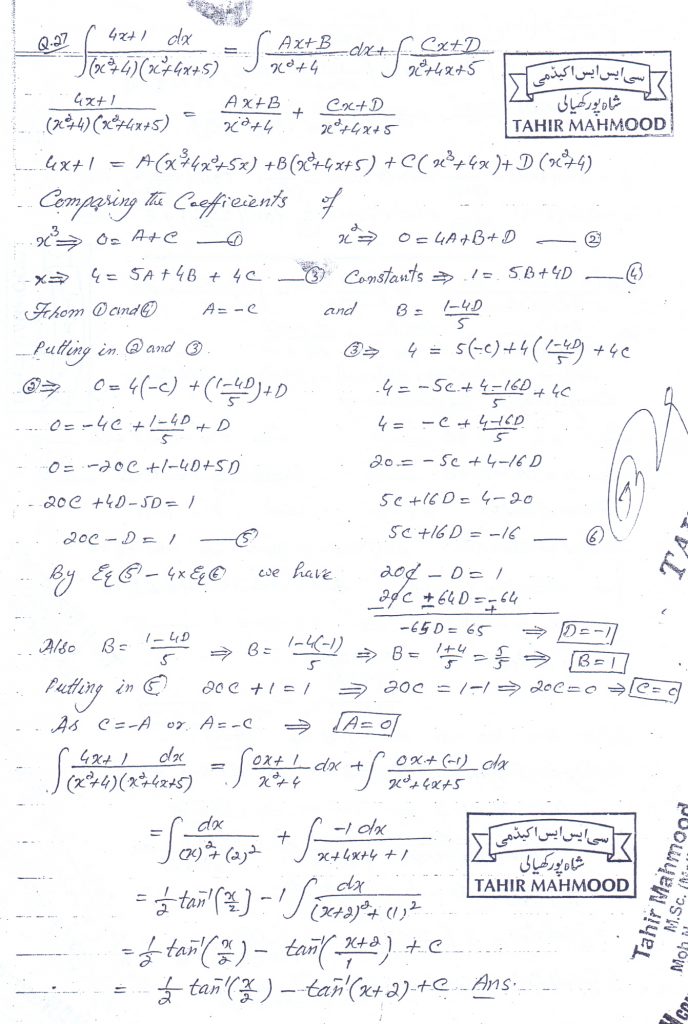 Q.27 ∫ 4x+1 dx / (x²+4)(x²+4x+5) = ∫ Ax+B / x²+4 dx + ∫ Cx+D / x²+4x+5
سی ایس ایس اکیڈمی
شاہ پور کھیالی
TAHIR MAHMOOD
4x+1 / (x²+4)(x²+4x+5) = Ax+B / x²+4 + Cx+D / x²+4x+5
4x+1 = A(x³+4x²+5x) + B(x²+4x+5) + C(x³+4x) + D(x²+4)
Comparing the Coefficients of
x³ ⇒ 0 = A+C — ① x² ⇒ 0 = 4A+B+D — ②
x ⇒ 4 = 5A+4B+4C — ③ Constants ⇒ 1 = 5B+4D — ④
From ① and ④ A = -C and B = 1-4D / 5
Putting in ② and ③ ③ ⇒ 4 = 5(-C)+4(1-4D / 5) + 4C
② ⇒ 0 = 4(-C) + (1-4D / 5) + D 4 = -5C + 4-16D / 5 + 4C
0 = -4C + 1-4D / 5 + D 4 = -C + 4-16D / 5
0 = -20C + 1-4D+5D 20 = -5C + 4-16D
20C + 4D-5D = 1 5C+16D = 4-20
20C - D = 1 — ⑤ 5C+16D = -16 — ⑥
By Eq ⑤ - 4x Eq ⑥ we have 20C - D = 1
20C ± 64D = -64
-65D = 65 ⇒ D = -1
Also B = 1-4D / 5 ⇒ B = 1-4(-1) / 5 ⇒ B = 1+4 / 5 = 5 / 5 ⇒ B = 1
Putting in ⑤ 20C + 1 = 1 ⇒ 20C = 1-1 ⇒ 20C = 0 ⇒ C = 0
As C = -A or A = -C ⇒ A = 0
∫ 4x+1 dx / (x²+4)(x²+4x+5) = ∫ 0x+1 / x²+4 dx + ∫ 0x+(-1) / x²+4x+5 dx
= ∫ dx / (x)²+(2)² + ∫ -1 dx / x+4x+4+1
سی ایس ایس اکیڈمی
شاہ پور کھیالی
TAHIR MAHMOOD
= 1/2 tan⁻¹(x/2) - 1 ∫ dx / (x+2)²+(1)²
= 1/2 tan⁻¹(x/2) - tan⁻¹(x+2 / 1) + c
= 1/2 tan⁻¹(x/2) - tan⁻¹(x+2) + c Ans.
Tahir Mahmood
M.Sc.